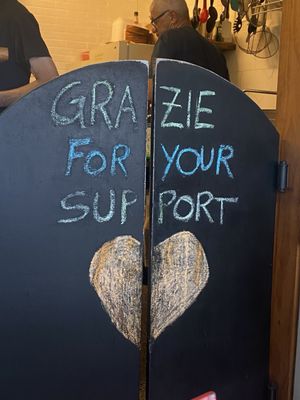 GRAZIE
FOR YOUR
SUPPORT